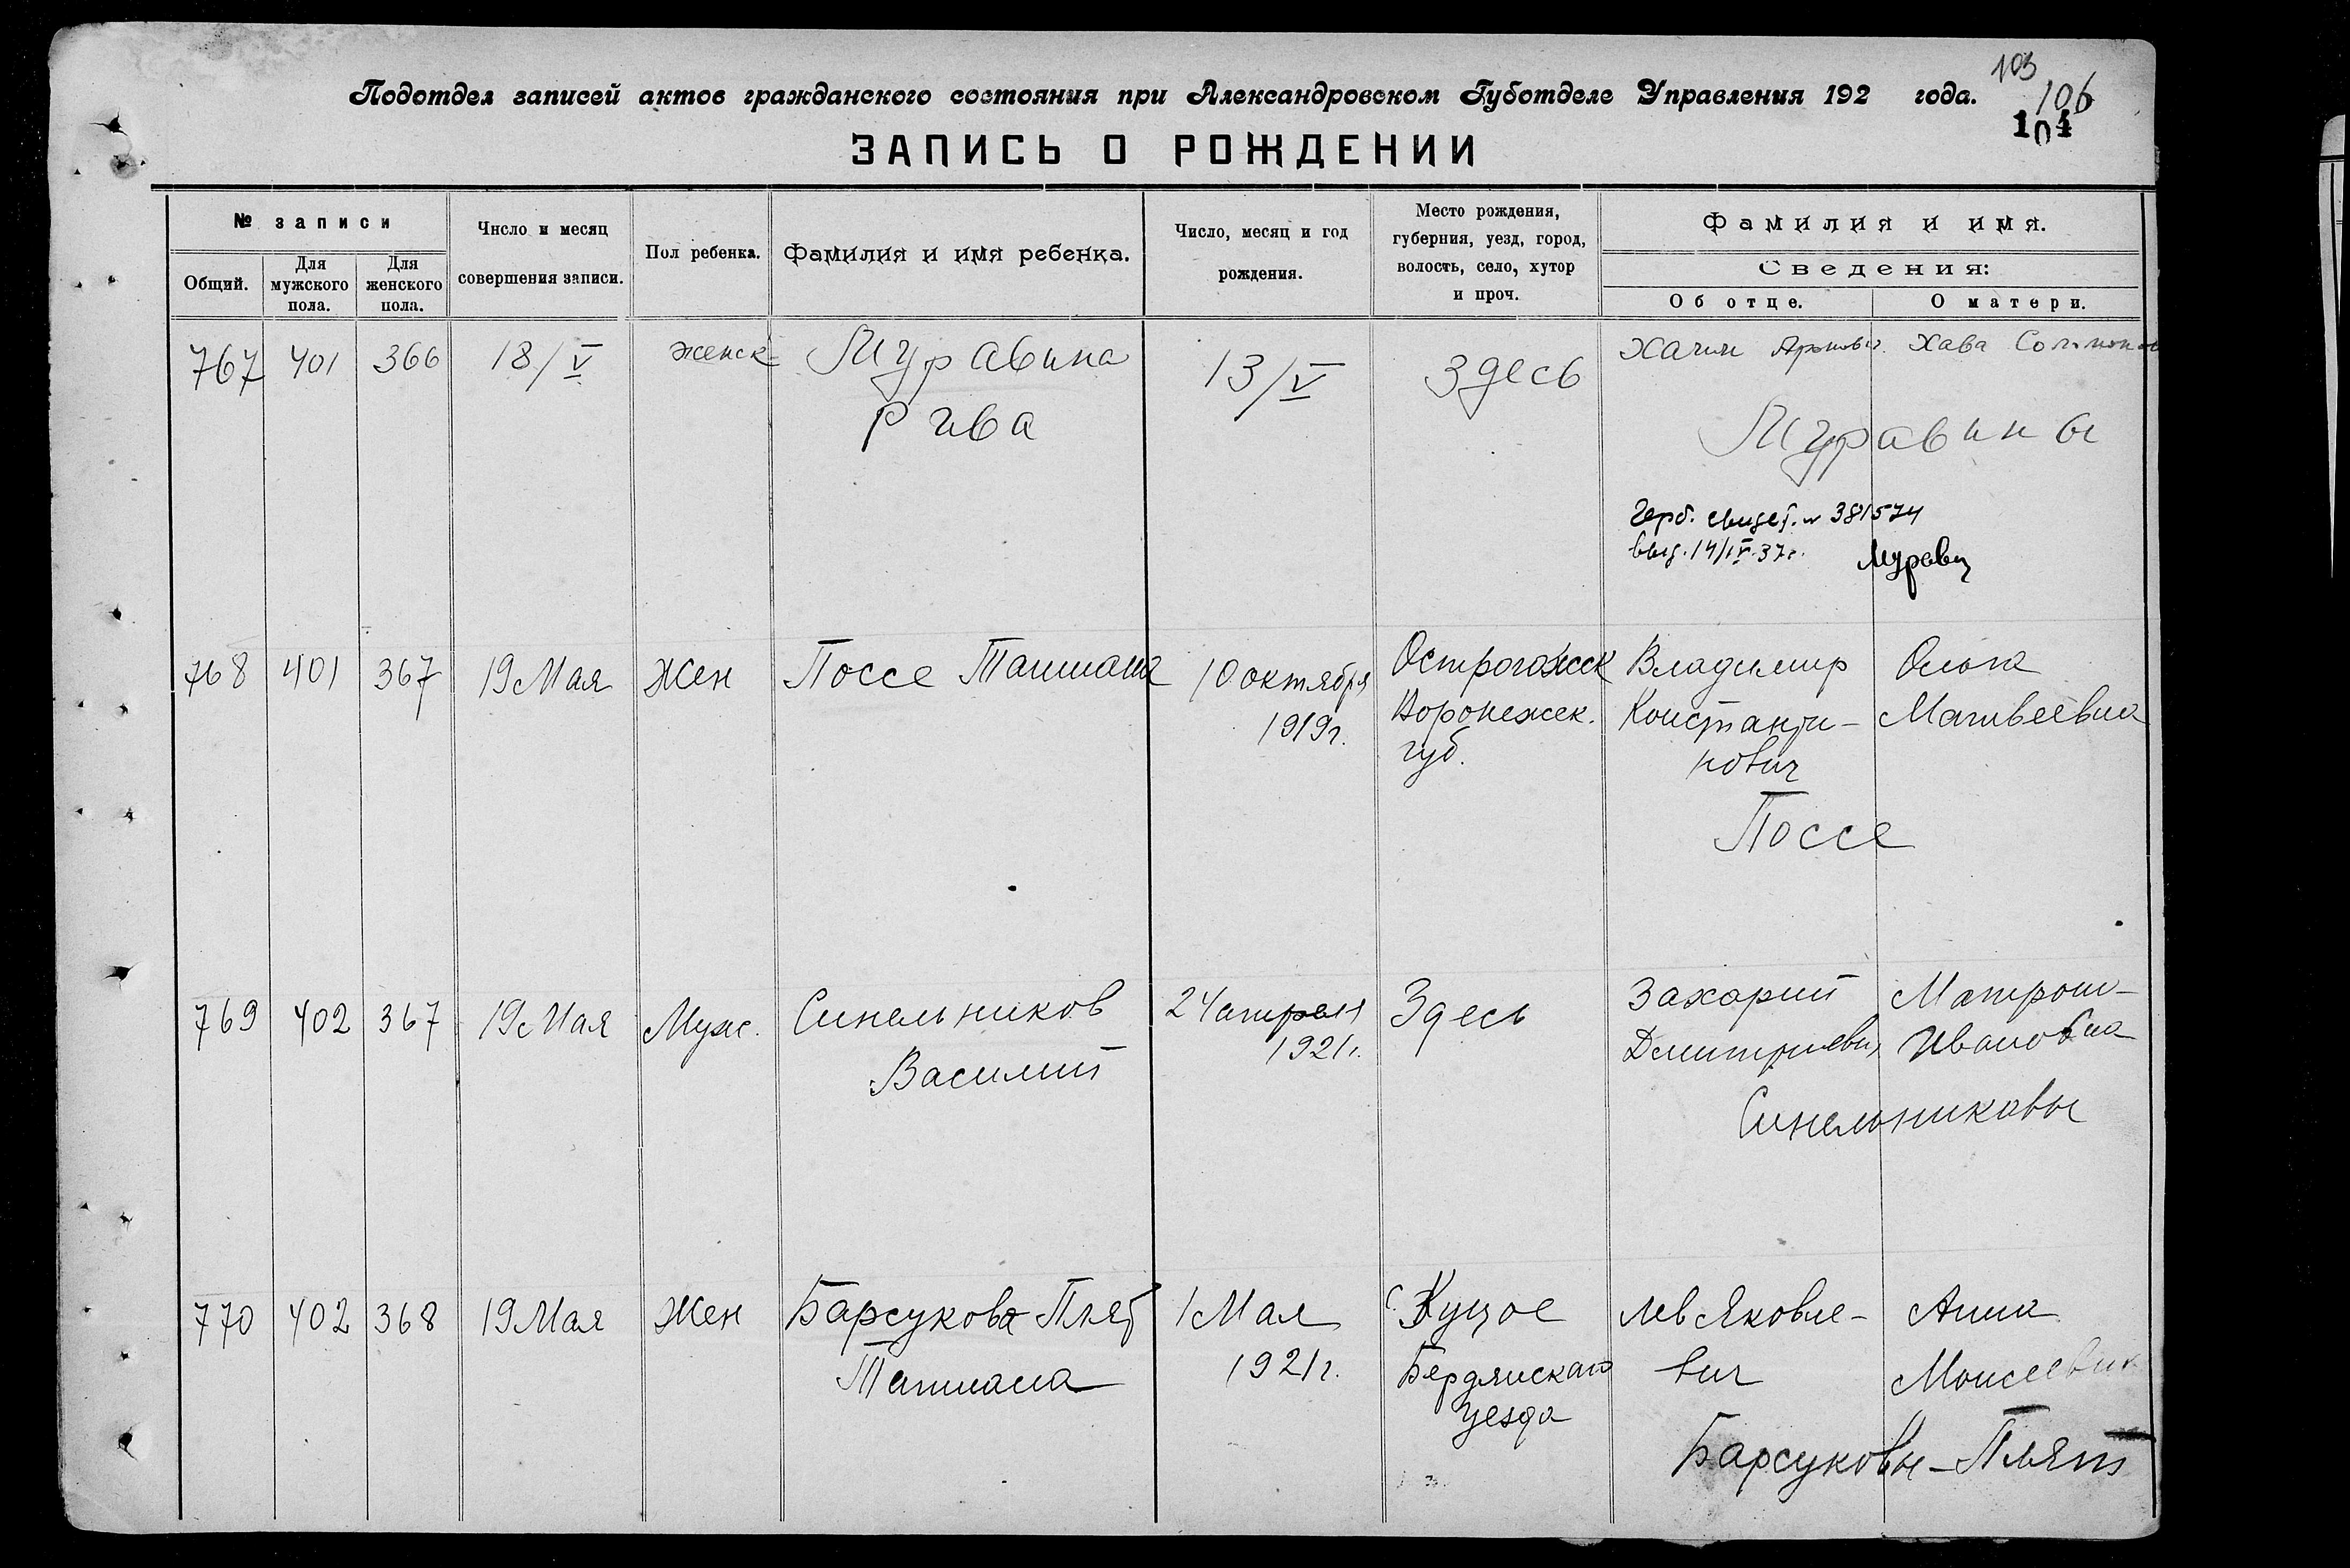 103
Подотдел записей актов гражданского состояния при Александровском Губотделе Управления 192 года.
106
104
ЗАПИСЬ О РОЖДЕНИИ
№ записи
Общий.
Для мужского пола.
Для женского пола.
Число и месяц совершения записи.
Пол ребенка.
Фамилия и имя ребенка.
Число, месяц и год рождения.
Место рождения, губерния, уезд, город, волость, село, хутор и проч.
Фамилия и имя.
Сведения:
Об отце.
О матери.
767 401 366 18/V женск Муравина 13/V Здесь Хаим Хава
Рива
Муравины
Герб. свидет. № 381574
выд. 14/IV.37г.
768 401 367 19 Мая Жен Поссе Татиана 10 октября Острогожск Владимир Ольга
1919г. Воронежск. Константи- Матвеевна
губ. нович
Поссе
769 402 367 19 Мая Муж. Синельников 24 апреля Здесь Захарий Матрона
Василий 1921г. Дмитриевич Ивановна
Синельниковы
770 402 368 19 Мая Жен Барсукова-Плят 1 Мая с. Лев Яковле- Анна
Татиана 1921г. Бердянскаго вич Моисеевна
уезда
Барсуковы-Плят